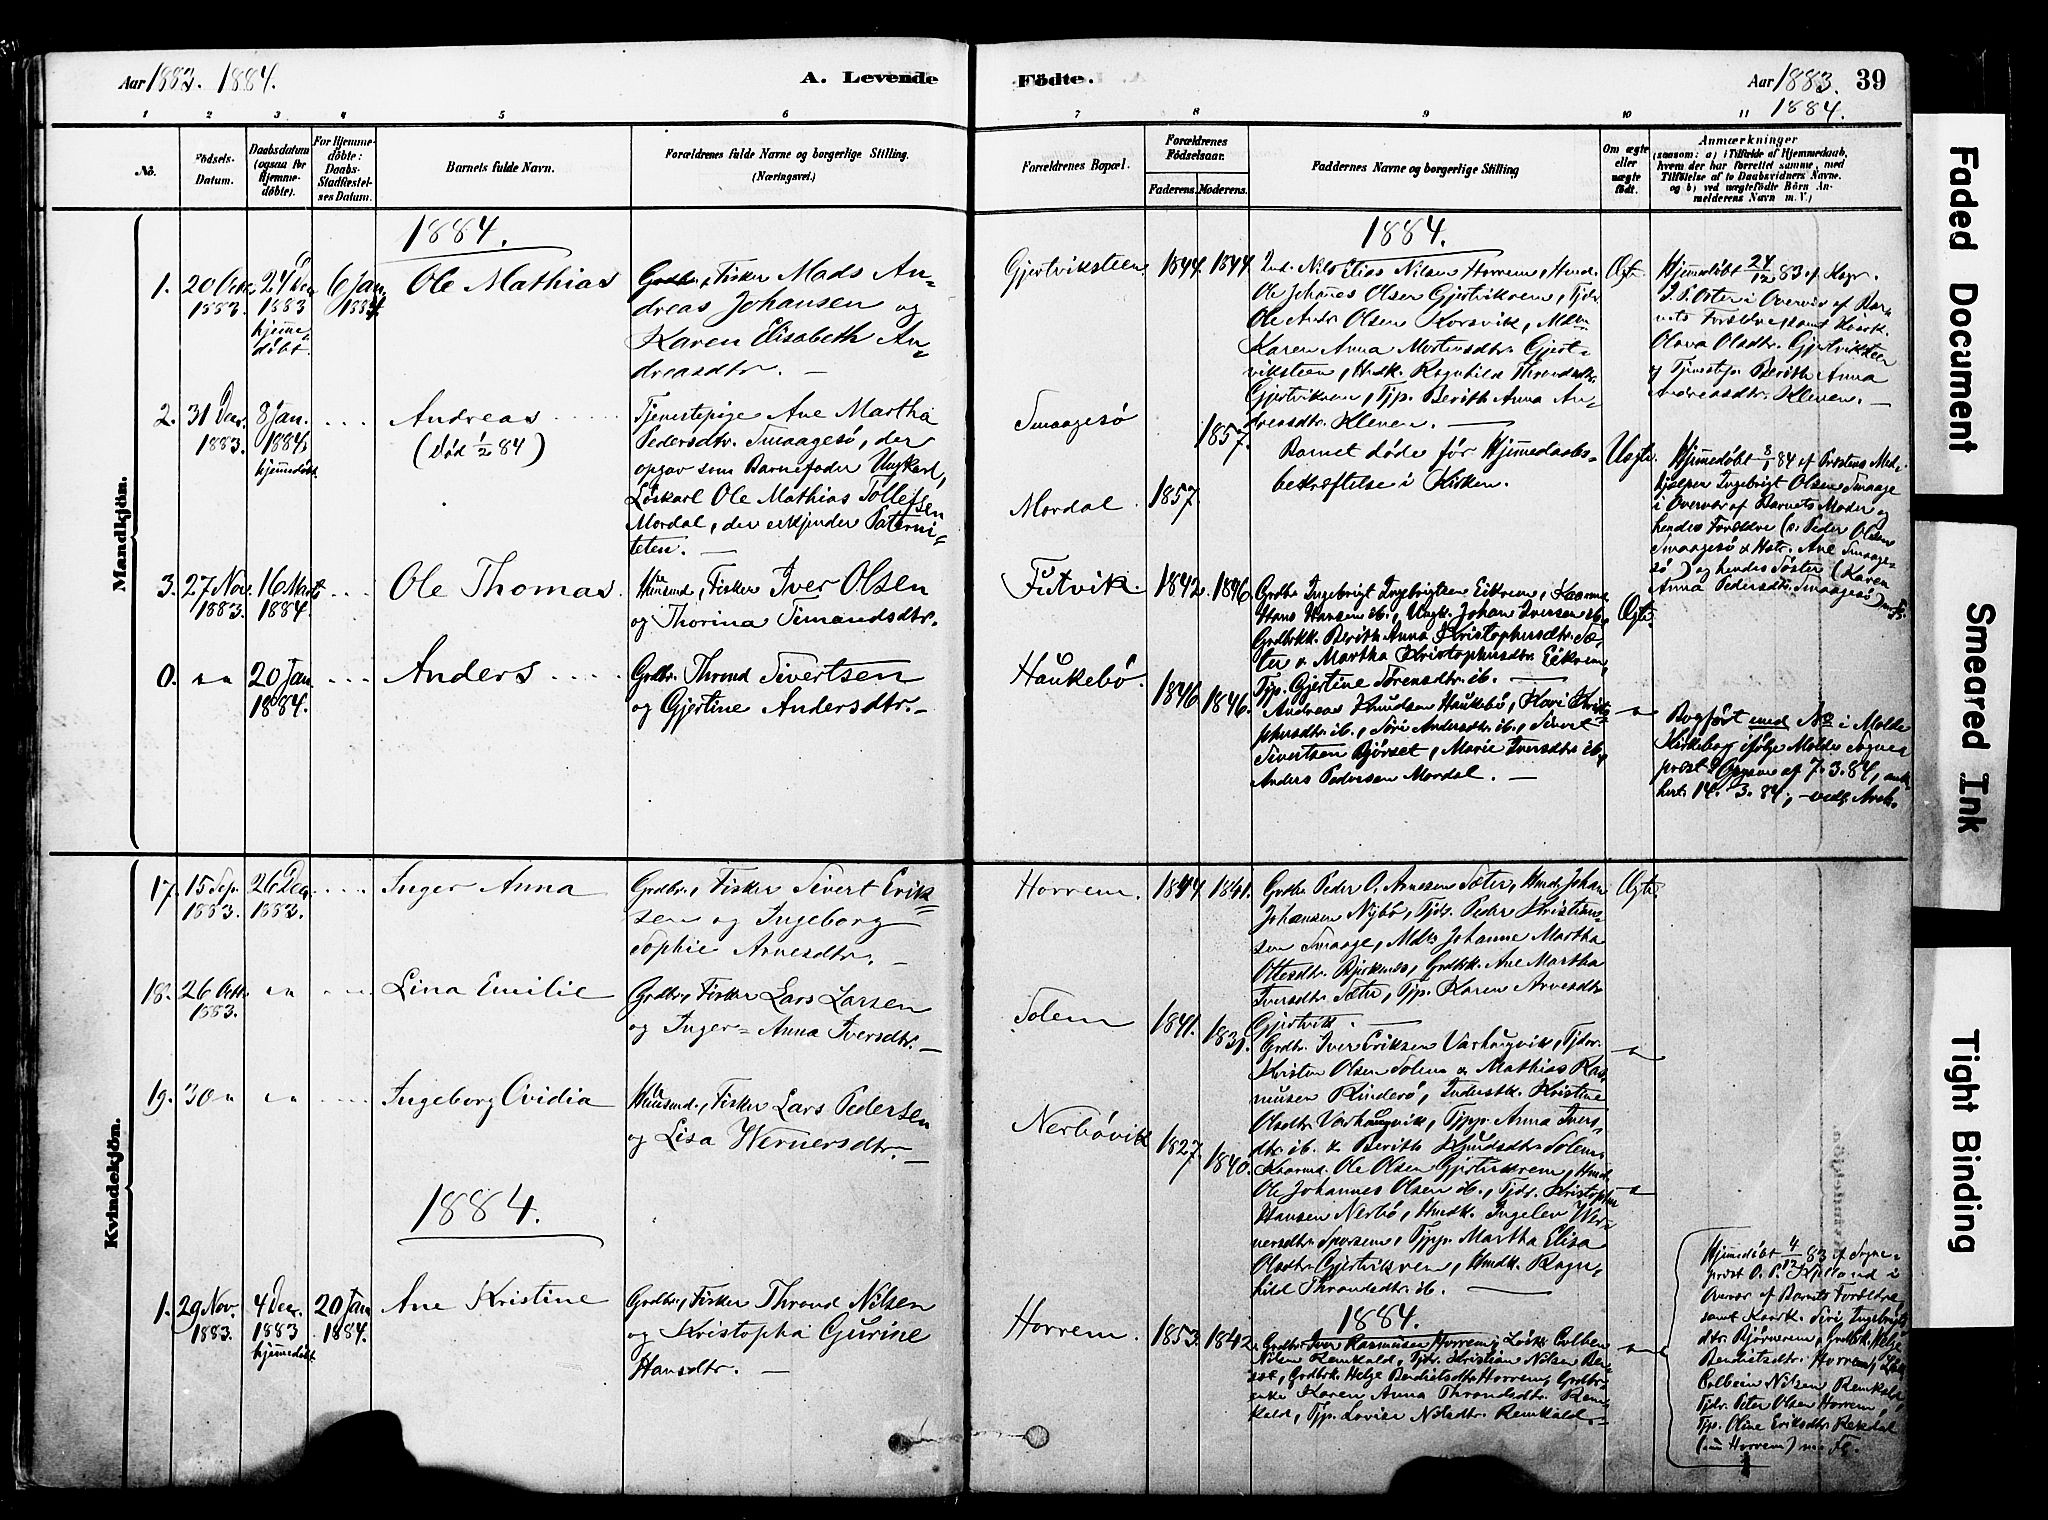 Aar 1883. 1884.
A. Levende
Födte.
Aar 1883. 39
1884.
1 2 3 4 5 6 7 8 9 10 11
No.
Födsels-
Datum.
Daabsdatum
(ogsaa for
Hjemme-
döbte).
For Hjemme-
döbte:
Daabs-
Stadfæstel-
ses Datum.
Barnets fulde Navn.
Forældrenes fulde Navne og borgerlige Stilling.
(Næringsvei.)
Forældrenes Bopæl.
Forældrenes
Födselsaar.
Faderens. Moderens.
Faddernes Navne og borgerlige Stilling
Om ægte
eller
uægte
födt.
Anmærkninger
(saasom: a) i Tilfælde af Hjemmedaab,
hvem der har forrettet samme, med
Tilföielse af to Daabsvidners Navne.
og b) ved uægtefödte Börn An-
melderens Navn m. V.)
Mandkjön.
1884.
1. 20 Octr. 1883.
24 Decr. 1883 hjemme-
döbt.
6 Jan. 1884.
Ole Mathias
Grdbr., Fisker Mads An-
dreas Johansen og
Karen Elisabeth An-
dreasdtr. —
Gjertviksteen 1844. 1844.
1884.
Ind. Nils Elias Nilsen Horrem, Hmd.
Ole Johannes Olsen Gjertvikrem, Tjdr.
Ole Andr. Olsen Korsvik, Mdm
Karen Anna Mortensdtr. Gjert-
viksteen, Hmdk. Ragnhild Throndsdtr.
Gjertvikrem, Tjp. Berith Anna An-
dreasdtr. Kleven. —
Ægte
Hjemmedöbt 24/12 83 af Kapt.
J. P. Oster i Overvær af Bar-
nets Forældre samt Kaark.
Olava Olsdtr. Gjertviksteen
og Tjenestep. Berith Anna
Andreasdtr. Kleven. —
2. 31 Decr. 1883.
8 Jan. 1884. hjemmedöbt.
Andreas
(Död 1/2 84)
Tjenestepige Ane Martha
Pedersdtr. Smaagesö, der
opgav som Barnefader Ungkarl,
Löskarl Ole Mathias Tollefsen
Mordal, der erkjender Paterni-
teten. —
Smaagesö 1857.
Mordal 1857.
Barnet döde för Hjemmedaabs-
bekræftelse i Kirken.
Uægte
Hjemmedöbt 8/1 84 af Præstens Med-
hjælper Ingebrigt Olsen Smaage
i Overvær af Barnets Moder og
hendes Forældre (o: Peder Olsen
Smaagesö & Hstr. Ane Smaage-
sö) og hendes Söster (Karen
Anna Pedersdtr. Smaagesö)
3. 27 Nov. 1883.
16 Marts 1884.
Ole Thomas
Huusmd., Fisker Iver Olsen
og Thorina Timandsdtr.
Futvik 1842. 1846.
Grdbr. Ingebrigt Ingebrigtsen Eikrem, Kaarmd.
Hans Hansen ib., Ungk. Johan Iversen ib.,
Grdbrkk. Berith Anna Kristophersdtr. Sæ-
ter & Martha Kristophersdtr. Eikrem,
Tjp. Gjertine Sörensdtr. ib. —
Ægte.
0.
20 Jan. 1884.
Anders
Grdbr. Thrond Sivertsen
og Gjertine Andersdtr. —
Haukebö. 1846. 1846.
Andreas Knudsen Haukebö, Kari Kristo-
phersdtr. ib., Siri Andersdtr. ib., Sivert
Sivertsen Björset, Marie Iversdtr. ib.,
Anders Pedersen Mordal. —
Bogfört med No i Molde
Kirkebog ifölge Molde Sogne-
præsts Opgave af 7. 3. 84, ank.
hert 14. 3. 84, vedl. Arch.
Kvindekjön.
17. 15 Sep. 1883.
26 Dec. 1883.
Inger Anna
Grdbr., Fisker Sivert Erik-
sen og Ingeborg
Sophie Arnesdtr. —
Horrem. 1844. 1841.
Grdbr. Peder O. Arnesen Sæter, Hmd. Johan
Johansen Nybö, Tjdr. Peder Kristian-
sen Smaage, Mdm. Johanne Martha
Ottesdtr. Bjerkenes, Grdbrkk. Ane Martha
Iversdtr. Sæter, Tjp. Karen Arvesdtr.
Gjertvik. —
Ægte.
18. 26 Octr. 1883.
Lina Emilie
Grdbr., Fisker Lars Larsen
og Inger-Anna Iversdtr. —
Solem 1841. 1831.
Grdbr. Iver Eriksen Varhaugvik, Tjdr.
Kristen Olsen Solem & Mathias Ras-
musen Rinderö, Inderstkk. Kristine
Olsdtr. Varhaugvik, Tjpp. Anna Ivers-
dtr. ib. & Berith Knudsdtr. Solem.
19. 30
Ingeborg Ovidia
Huusmd., Fisker Lars Pedersen
og Lisa Wernersdtr. —
Nerbövik 1827. 1840.
Kaarmd. Ole Olsen Gjertvikrem, Hmd.
Ole Johannes Olsen ib., Tjdr. Kristopher
Hansen Nerbö, Hmdk. Ingelev Wer-
nersdtr. Sporsem, Tjpp. Martha Elisa
Olsdtr. Gjertvikrem, Hmdk. Ragn-
hild Throndsdtr. ib. —
1884.
1. 29 Nov. 1883.
4 Decr. 1883 hjemmedöbt
20 Jan. 1884.
Ane Kristine
Grdbr., Fisker Thrond Nilsen
og Kristopha Gurine
Hansdtr. —
Horrem. 1853. 1842.
1884.
Grdbr. Iver Rasmusen Horrem, Lösk. Colben
Nilsen Remkald, Tjdr. Kristian Nilsen Ber-
set, Grdbrk. Helge Bendictsdtr. Horrem, Grdbr.
enke Karen Anna Throndsdtr. Rem-
kald, Tjp. Lovise Nilsdtr. Remkald.
Hjemmedöbt 4/12 83 af Sogne-
præst O. P. Kjelland i
Overvær af Barnets Forældre
samt Kaark. Siri Ingebrigts-
dtr. Björnerem, Grdbrk. Helge
Bendictsdtr. Horrem, Lösk.
Colbein Nilsen Remkald,
Tjdr. Peter Olsen Horrem,
Tjp. Oline Eriksdtr. Rekdal
(nu Horrem) m. Fl.
Faded Document
Smeared Ink
Tight Binding